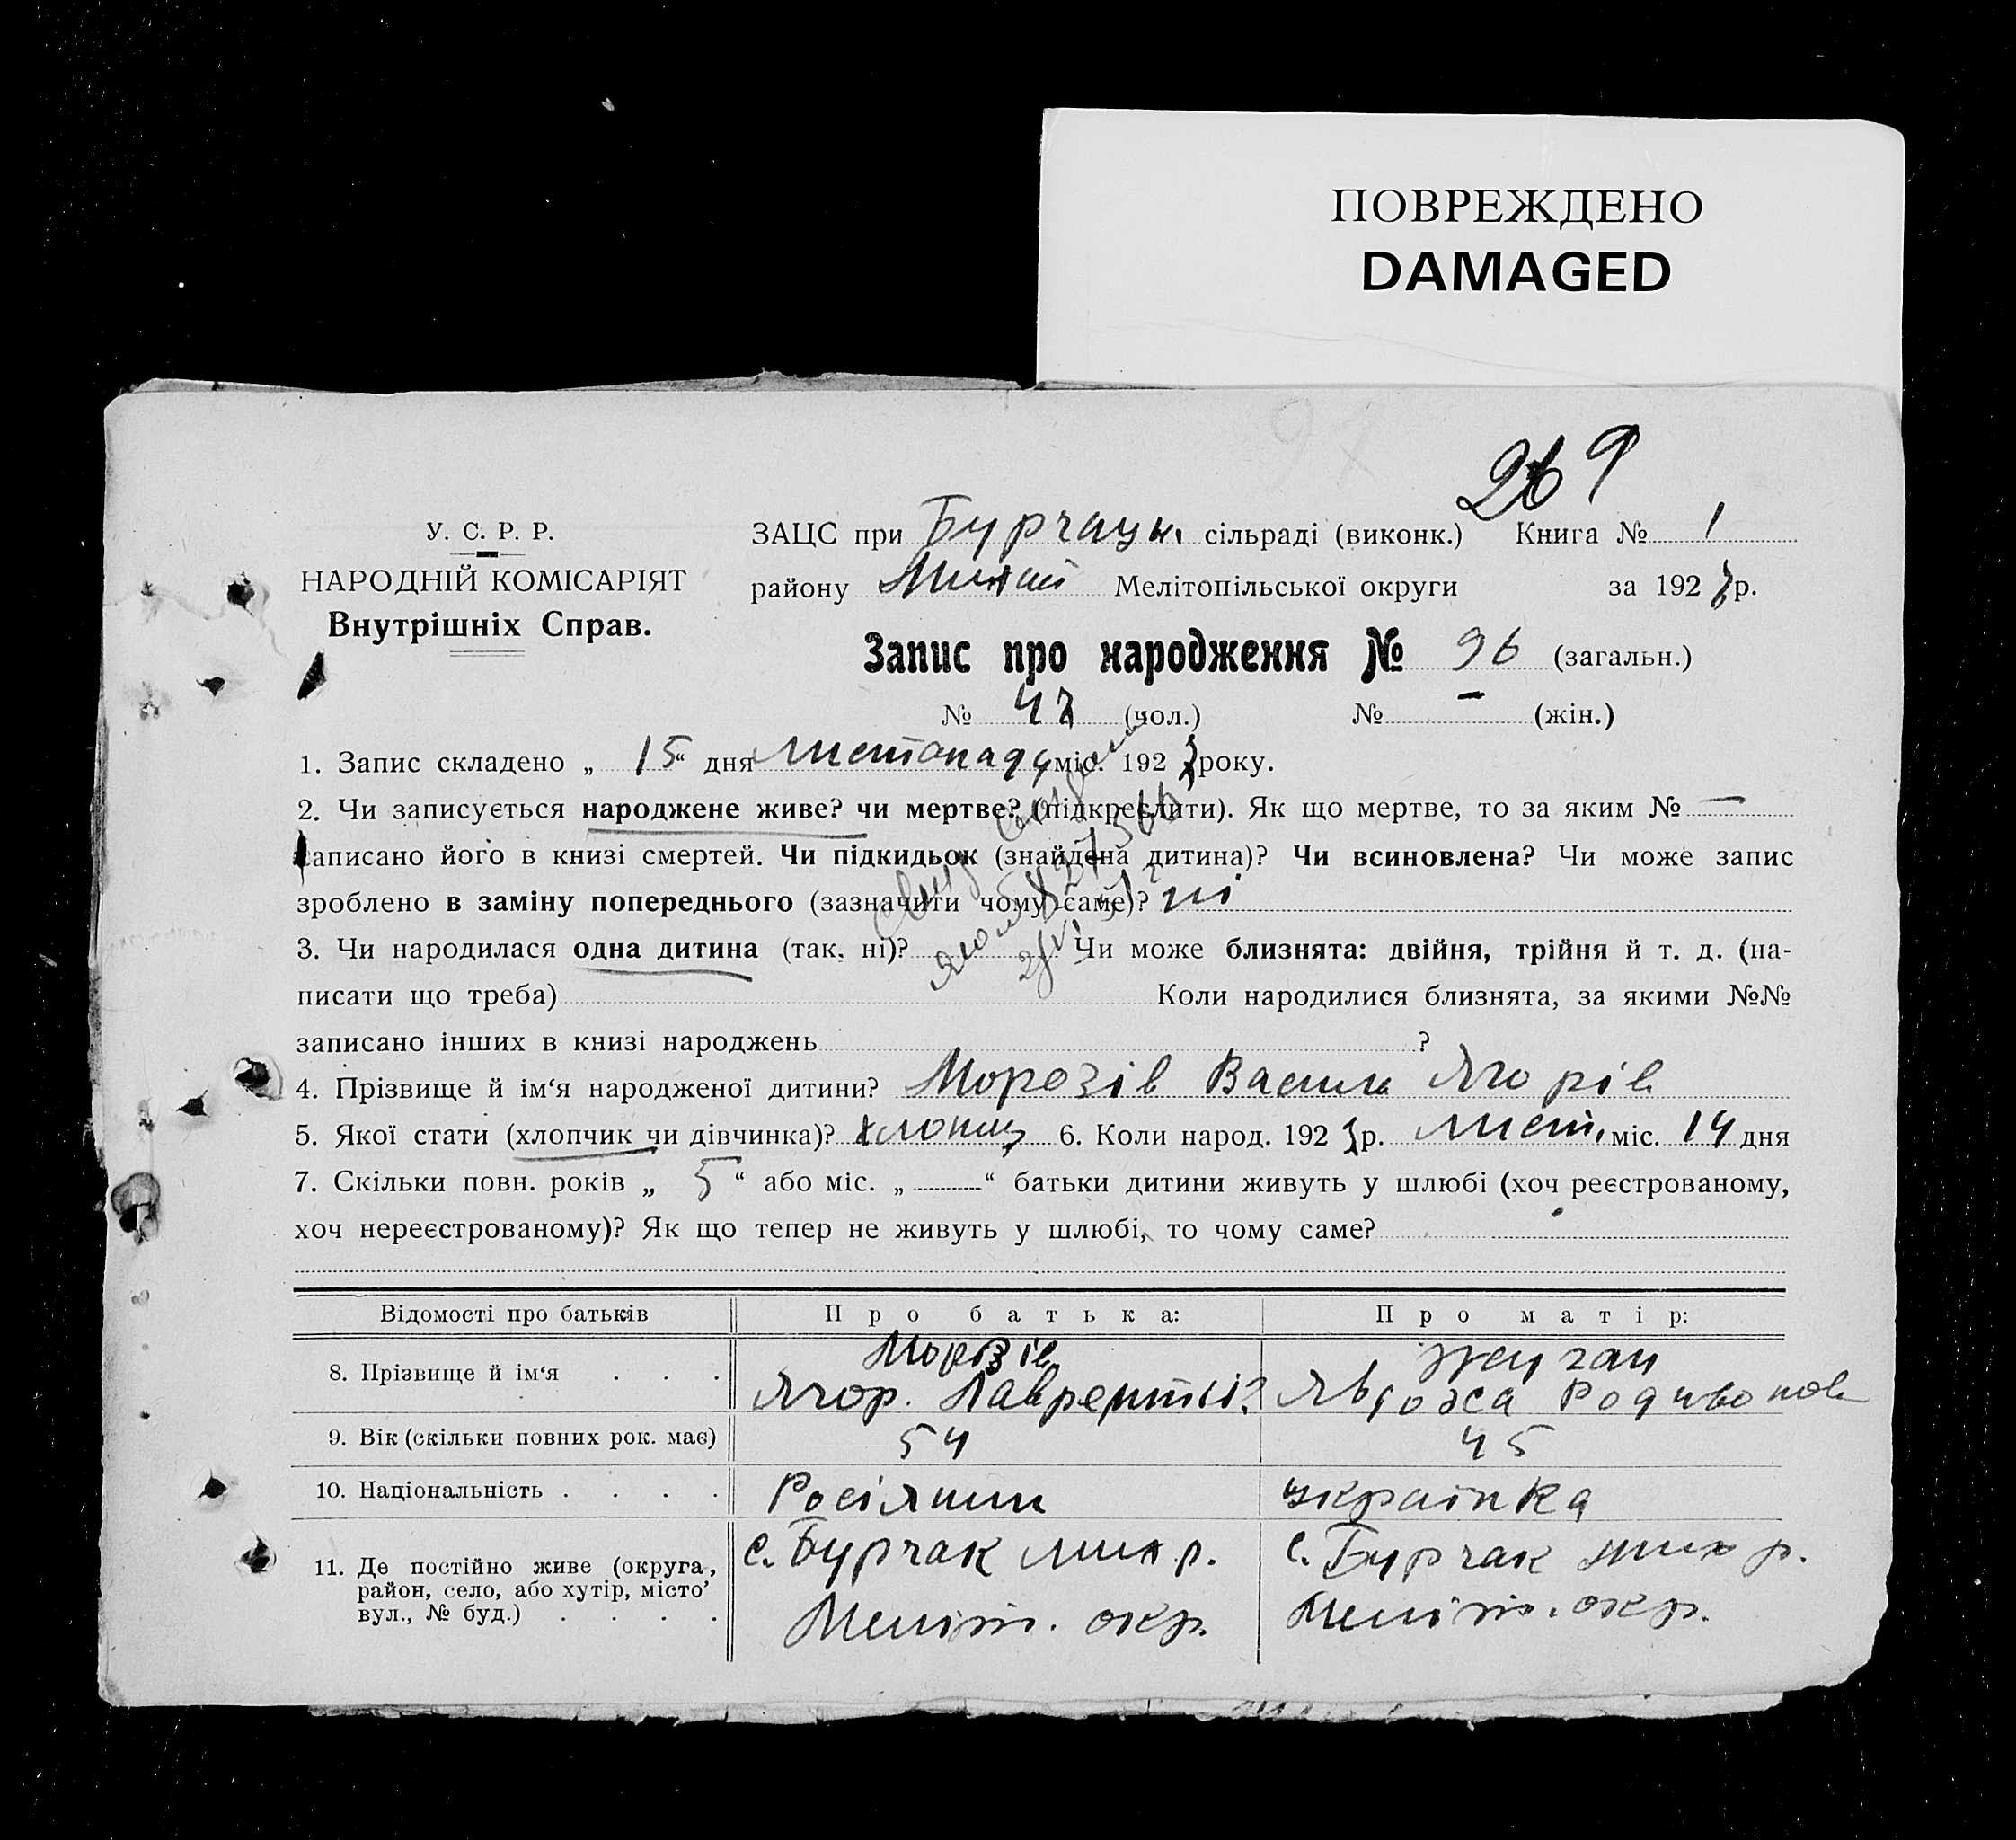 ПОВРЕЖДЕНО
DAMAGED
269
У. С. Р. Р.
НАРОДНІЙ КОМІСАРІЯТ
Внутрішніх Справ.
ЗАЦС при Бурчацьк. сільраді (виконк.) Книга № 1
району Михай Мелітопільської округи за 192 р.
Запис про народження № 96 (загальн.)
№ 47 (чол.) № – (жін.)
1. Запис складено „ 15 “ дня листопаду міс. 192 року.
2. Чи записується народжене живе? чи мертве? (підкреслити). Як що мертве, то за яким № —
записано його в книзі смертей. Чи підкидьок (знайдена дитина)? Чи всиновлена? Чи може запис
зроблено в заміну попереднього (зазначити чому саме)? ні
3. Чи народилася одна дитина (так, ні)? Чи може близнята: двійня, трійня й т. д. (на-
писати що треба) Коли народилися близнята, за якими №№
записано інших в книзі народжень ?
4. Прізвище й ім‘я народженої дитини? Морозів Василь Ягорів
5. Якої стати (хлопчик чи дівчинка)? хлопец 6. Коли народ. 192 р. лист. міс. 14 дня
7. Скільки повн. років „ 5 “ або міс. „ — “ батьки дитини живуть у шлюбі (хоч реєстрованому,
хоч нереєстрованому)? Як що тепер не живуть у шлюбі, то чому саме?
Відомості про батьків Про батька: Про матір:
8. Прізвище й ім‘я . . . Морозів
Ягор. Лаврентій Явдоха Родивонов
9. Вік (скільки повних рок. має) 54 45
10. Національність . . . . Росіянин українка
11. Де постійно живе (округа, район, село, або хутір, місто’ вул., № буд.) . . . . с. Бурчак мих р. с. Бурчак мих р.
Меліт. окр. Меліт. окр.